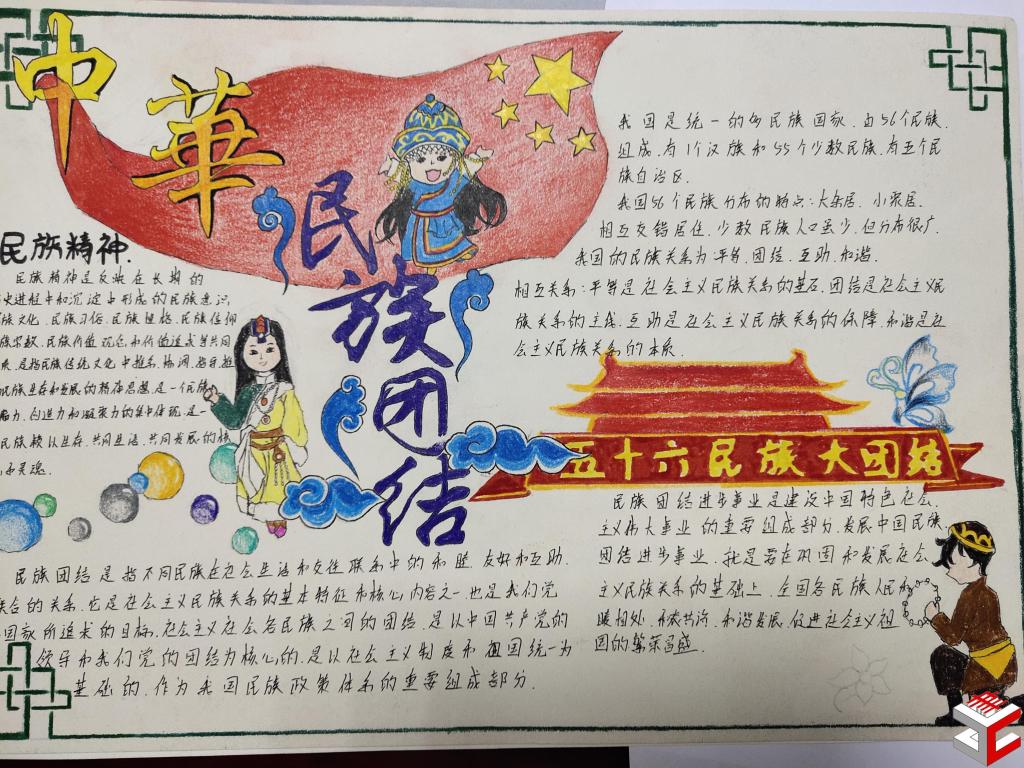 中華
民族团结
民族精神.
民族精神是反映在长期的
史进程中和沉淀中形成的民族意识,
族文化.民族习俗.民族性格.民族信仰
族宗教.民族价值观念和价值追求等共同
是指民族传统文化中
民族生存和发展的精神思想.是一个民族
力.创造力和凝聚力的集中体现.是一
民族赖以生存.共同生活.共同发展的核
和灵魂.
我国是统一的多民族国家.由56个民族.
组成.有1个汉族和55个少数民族.有五个民
族自治区.
我国56个民族分布的特点:大杂居.小聚居.
相互交错居住.少数民族人口虽少.但分布很广.
我国的民族关系为平等.团结.互助.和谐.
相互关系:平等是社会主义民族关系的基石.团结是社会主义民
族关系的主线.互助是社会主义民族关系的保障.和谐是社
会主义民族关系的本质.
五十六民族大团结
民族团结进步事业是建设中国特色社会.
主义伟大事业的重要组成部分.发展中国民族.
团结进步事业.就是要在巩固和发展社会.
主义民族关系的基础上.全国各民族人民和
睦相处.和衷共济.和谐发展.促进社会主义祖
国的繁荣昌盛.
民族团结是指不同民族在社会生活和交往联系中的和睦.友好和互助.
联合的关系.它是社会主义民族关系的基本特征和核心内容之一.也是我们党
国家所追求的目标.社会主义社会各民族之间的团结.是以中国共产党的
领导和我们党的团结为核心的.是以社会主义制度和祖国统一为
基础的.作为我国民族政策体系的重要组成部分.